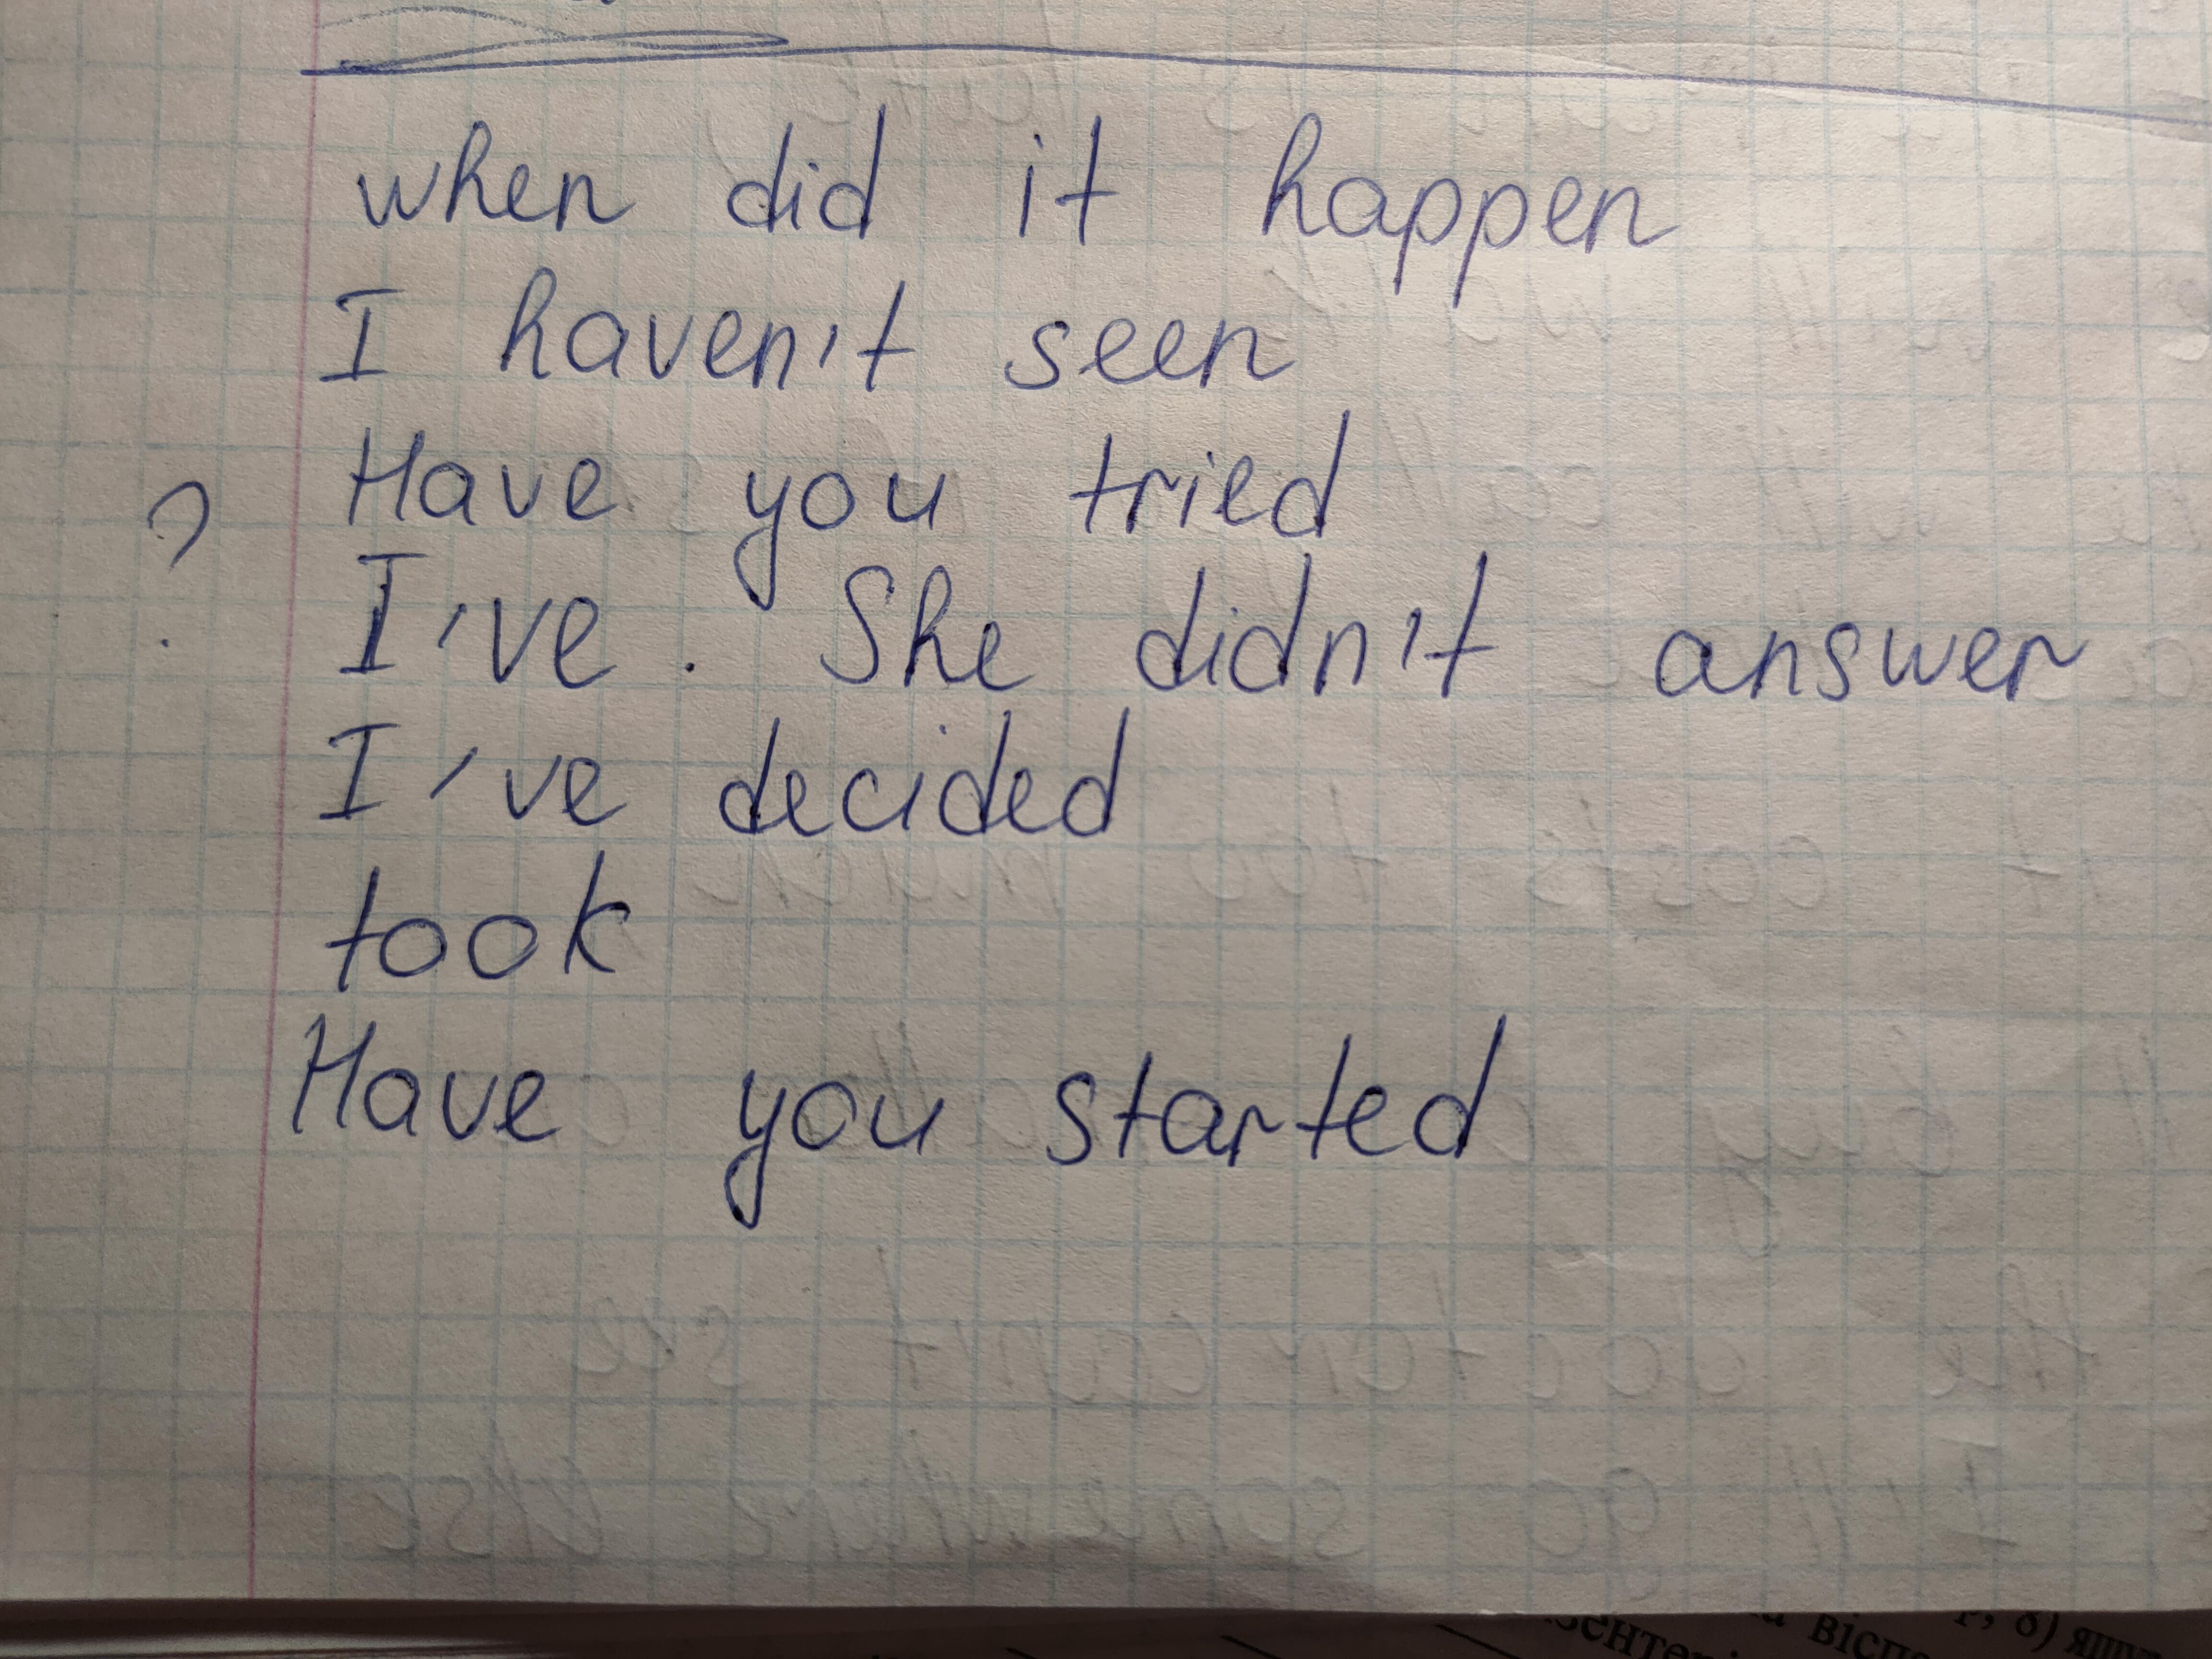 when did it happen
I haven't seen
Have you tried
?
I've. She didn't answer
I've decided
took
Have you started